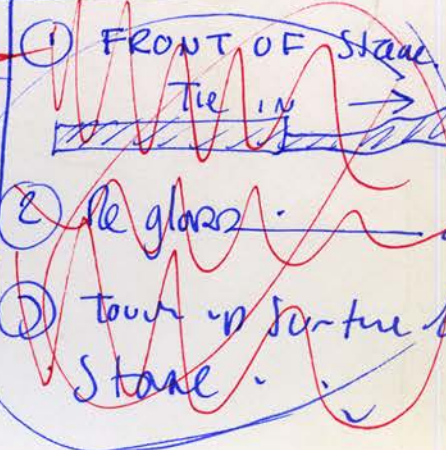 ① FRONT OF Stage
Tie IN
② Re glass
③ Touch up
Stage.